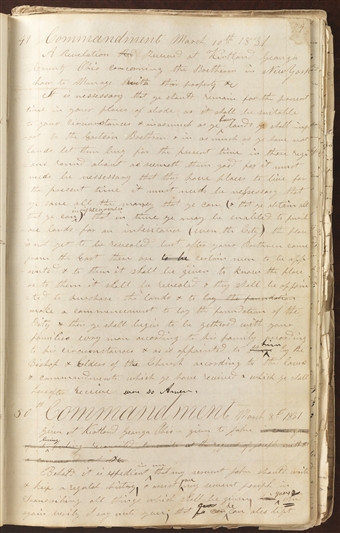 48 Commandment March 10th 1831
A Revelation Received at Kirtland Geauga
County Ohio concerning the Bretheren in New
how to Manage with their property &c
It is necessary that ye should remain for the present
time in your places of abode as it shall be suitable
to your circumstances & inasmuch as ye have lands ye shall impart
to the Eastern Bretheren & in as much as ye have not
lands let them buy for the present time in those regions
round about as seemeth them good for it must
needs be necessary that they have places to live for
the present time it must needs be necessary that
ye save all the money that ye can & that ye obtain all
that ye can in righteousness that in time ye may be enabled to purchase
lands for an inheritance (even the City) the place
is not yet to be revealed but after your Bretheren come
from the East there are to be certain men to be appointed
& to them it shall be given to know the place
or to them it shall be revealed & they shall be appointed
to purchase the lands & to
make a commencement to lay the foundation of the
City & then ye shall begin to be gethered with your
families every man according to his family according
to his circumstances & as is appointed to him by the
Bishop & Elders of the Church according to the laws
& commandments which ye have received & which ye shall
hereafter Receive even so Amen
50 Commandment March 8th 1831
given at Kirtland Geauga Ohio given to John
Behold it is expedient in me that my servent John should write
& keep a regular history & assist my servent Joseph in
Transcribing all things which shall be given